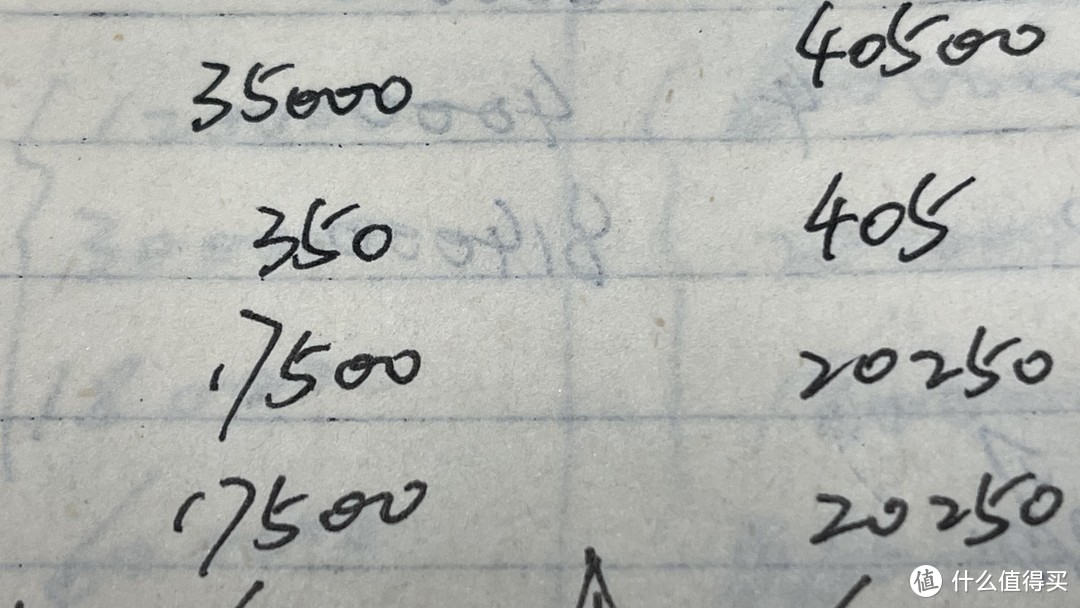 35000 40500
350 405
17500 20250
17500 20250
值 什么值得买